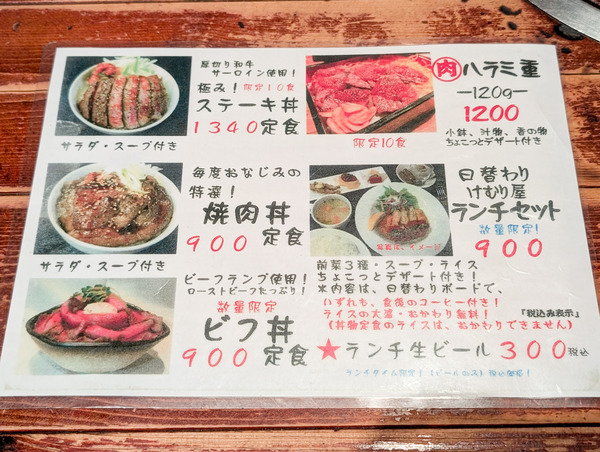 厚切り和牛
サーロイン使用！
極み！限定10食
ステーキ丼
1340定食
サラダ・スープ付き
毎度おなじみの
特選！
焼肉丼
900定食
サラダ・スープ付き
ビーフランプ使用！
ローストビーフたっぷり！
数量限定
ビフ丼
900定食
肉ハラミ重
ー120gー
1200
限定10食
小鉢、汁物、香の物
ちょこっとデザート付き
日替わり
けむり屋
ランチセット
数量限定！
900
写真は、イメージ
前菜3種・スープ・ライス
ちょこっとデザート付き！
※内容は、日替わりボードで、
いずれも、食後のコーヒー付き！
ライスの大盛・おかわり無料！
「税込み表示」
(丼物定食のライスは、おかわりできません)
★ランチ生ビール 300税込